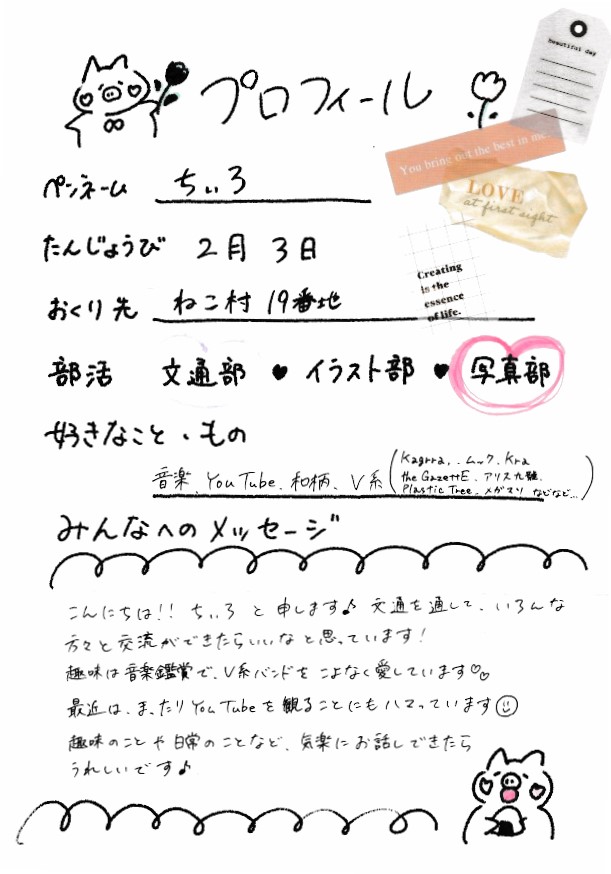 プロフィール
beautiful day
You bring out the best in me.
LOVE
at first sight
ペンネーム ちぃろ
たんじょうび 2月 3日
おくり先 ねこ村 19番地
Creating
is the
essence
of life.
部活 文通部 ♥ イラスト部 ♥ 写真部
好きなこと・もの
音楽、YouTube、和柄、V系(Kagrra,、ムック、Kra
the GazettE、アリス九號.
Plastic Tree、メガマソ などなど...)
みんなへのメッセージ
こんにちは!! ちぃろ と申します♪ 文通を通して、いろんな
方々と交流ができたらいいなと思っています!
趣味は音楽鑑賞で、V系バンドをこよなく愛しています♡♡
最近は、まったりYouTubeを観ることにもハマっています☺
趣味のことや日常のことなど、気楽にお話しできたら
うれしいです♪